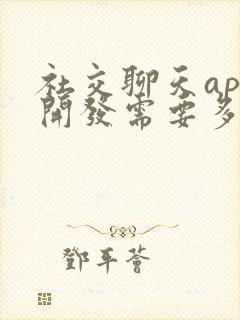 社交聊天ap
開發需要多
鄧平薈